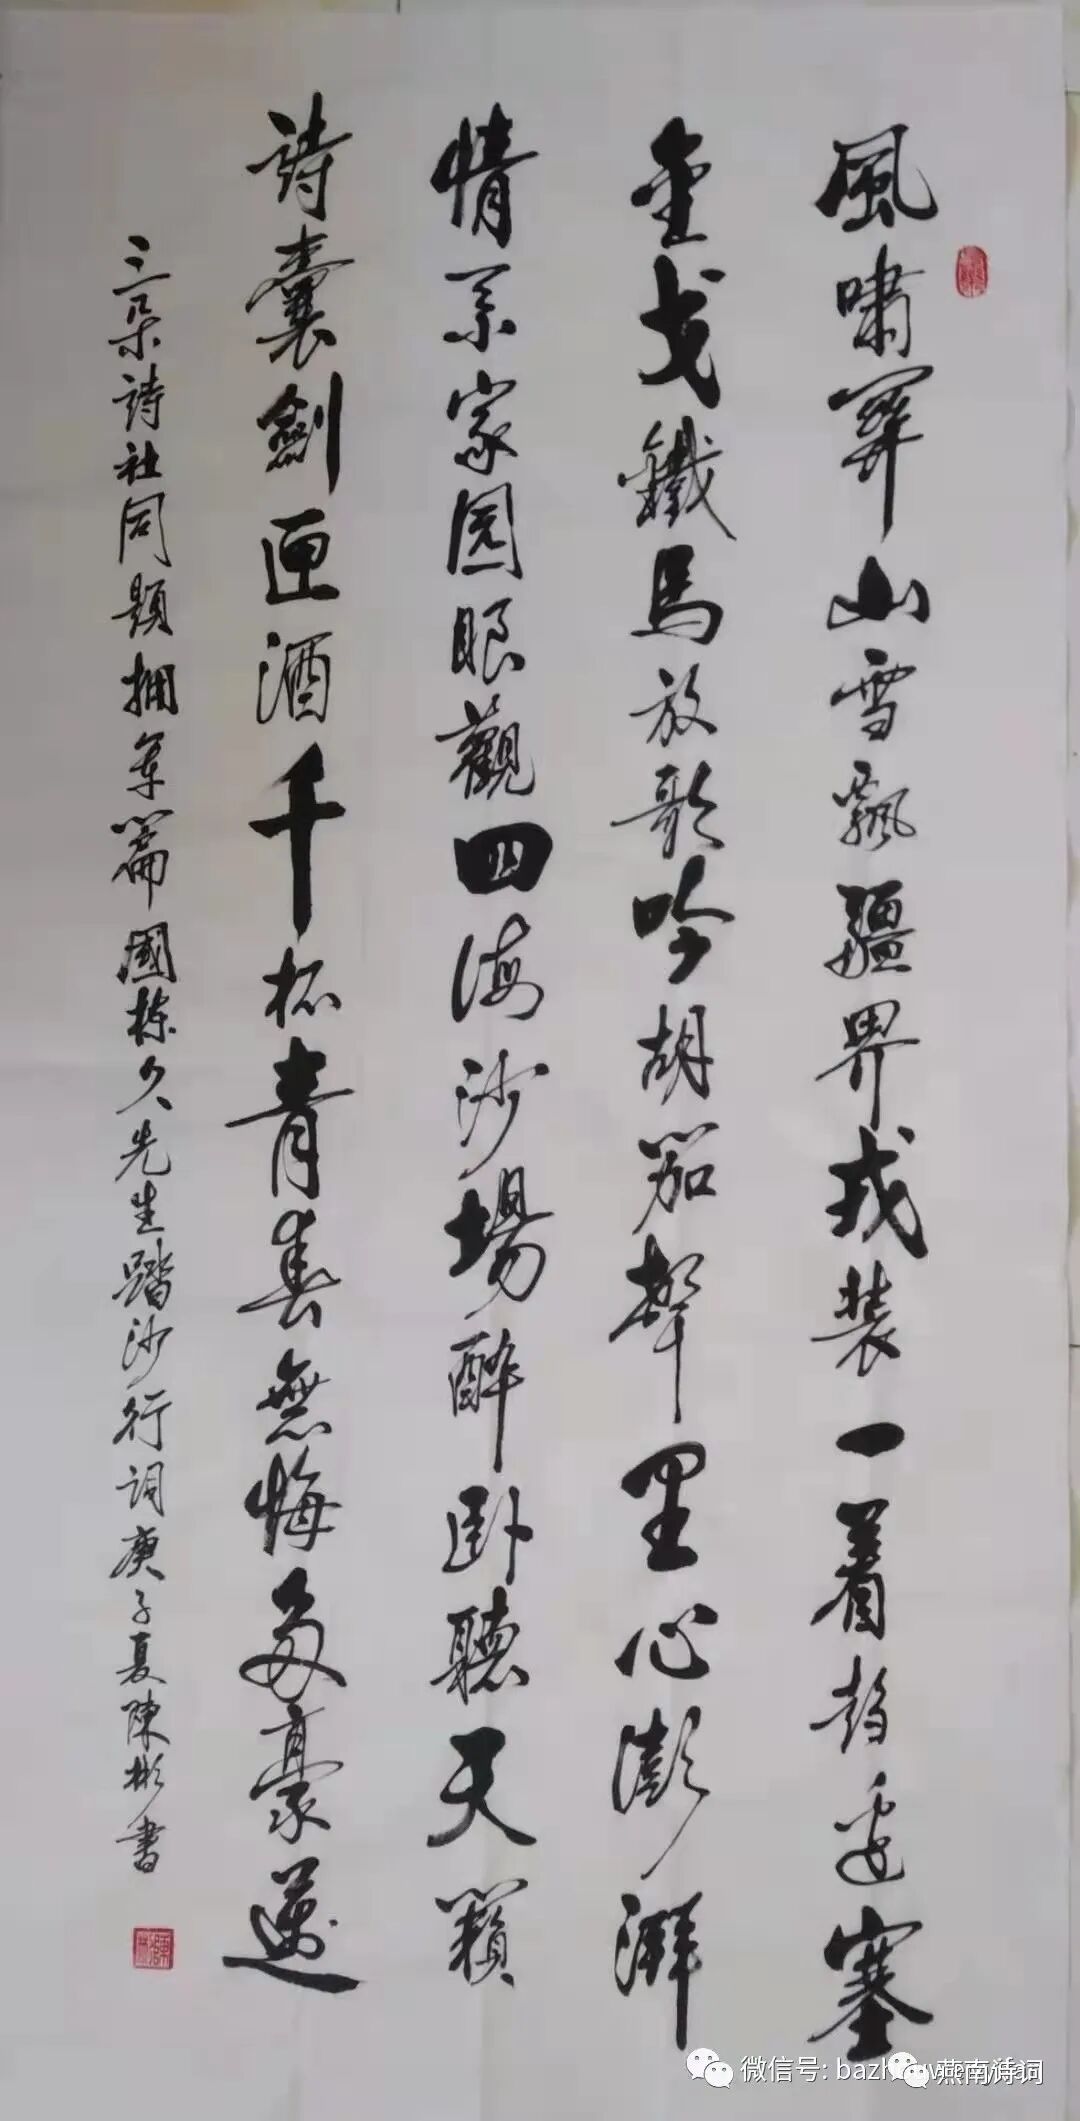 風嘯關山雪飄疆界戎装一着趋边塞
金戈鐵馬放歌吟胡笳聲里心澎湃
情系家园眼觀四海沙場醉卧聽天籟
詩囊劍匣酒千杯青春無悔多豪邁
三朵詩社同題拥军篇國栋久先生踏沙行詞庚子夏陳彬書
微信号: bazh
燕南诗词